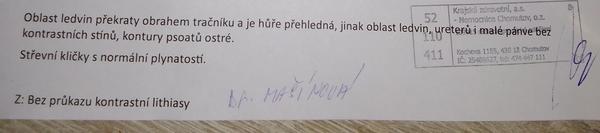 Oblast ledvin překraty obrahem tračníku a je hůře přehledná, jinak oblast ledvin, ureterů i malé pánve bez
kontrastních stínů, kontury psoatů ostré.
Střevní kličky s normální plynatostí.
Z: Bez průkazu kontrastní lithiasy
Dr. MAŠÍNOVÁ
52
110
411
Krajská zdravotní, a.s.
- Nemocnice Chomutov, o.z.
Kochova 1185, 430 12 Chomutov
IČ: 25488627, tel: 474 447 111